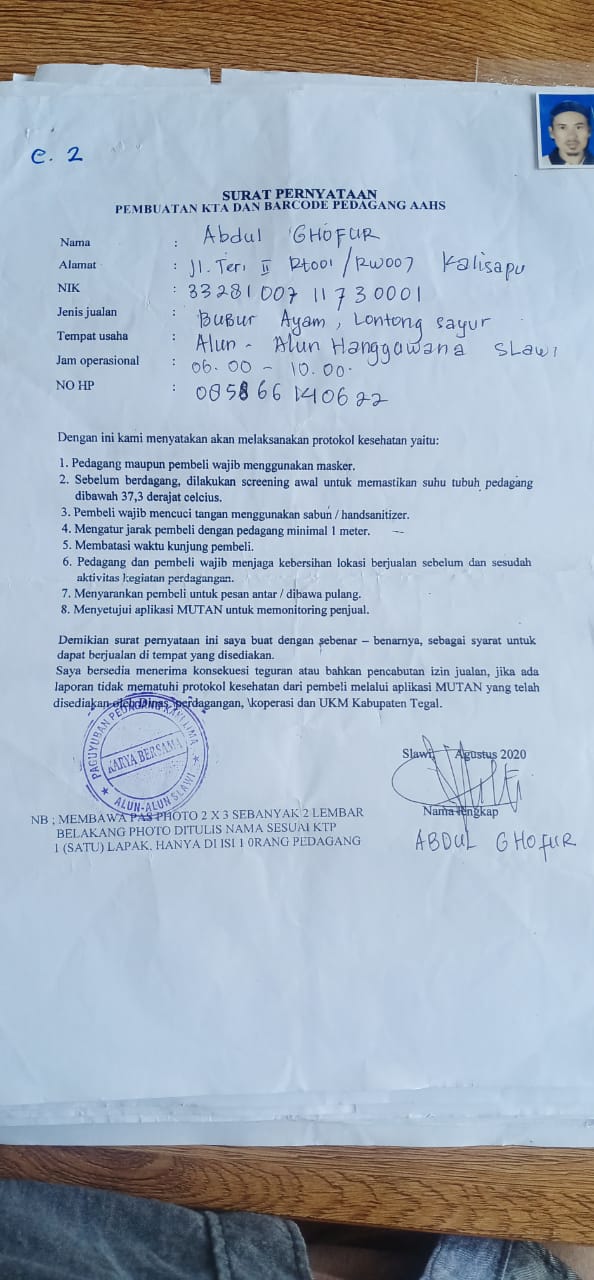 e. 2
SURAT PERNYATAAN
PEMBUATAN KTA DAN BARCODE PEDAGANG AAHS
Nama : Abdul GHOFUR
Alamat : Jl. Teri II Rt001/RW007 Kalisapu
NIK : 3328100711730001
Jenis jualan : BUBUR Ayam, Lontong sayur
Tempat usaha : Alun - Alun Hanggawana SLawi
Jam operasional : 06.00 - 10.00.
NO HP : 085866140622
Dengan ini kami menyatakan akan melaksanakan protokol kesehatan yaitu:
1. Pedagang maupun pembeli wajib menggunakan masker.
2. Sebelum berdagang, dilakukan screening awal untuk memastikan suhu tubuh pedagang
dibawah 37,3 derajat celcius.
3. Pembeli wajib mencuci tangan menggunakan sabun / handsanitizer.
4. Mengatur jarak pembeli dengan pedagang minimal 1 meter.
5. Membatasi waktu kunjung pembeli.
6. Pedagang dan pembeli wajib menjaga kebersihan lokasi berjualan sebelum dan sesudah
aktivitas kegiatan perdagangan.
7. Menyarankan pembeli untuk pesan antar / dibawa pulang.
8. Menyetujui aplikasi MUTAN untuk memonitoring penjual.
Demikian surat pernyataan ini saya buat dengan sebenar – benarnya, sebagai syarat untuk
dapat berjualan di tempat yang disediakan.
Saya bersedia menerima konsekuesi teguran atau bahkan pencabutan izin jualan, jika ada
laporan tidak mematuhi protokol kesehatan dari pembeli melalui aplikasi MUTAN yang telah
disediakan oleh Dinas perdagangan, \koperasi dan UKM Kabupaten Tegal.
PAGUYUBAN PEDAGANG KAKI LIMA
KARYA BERSAMA
ALUN-ALUN SLAWI
Slawi, Agustus 2020
Nama lengkap
ABDUL GHOFUR
NB ; MEMBAWA PAS PHOTO 2 X 3 SEBANYAK 2 LEMBAR
BELAKANG PHOTO DITULIS NAMA SESUAI KTP
1 (SATU) LAPAK. HANYA DI ISI 1 0RANG PEDAGANG